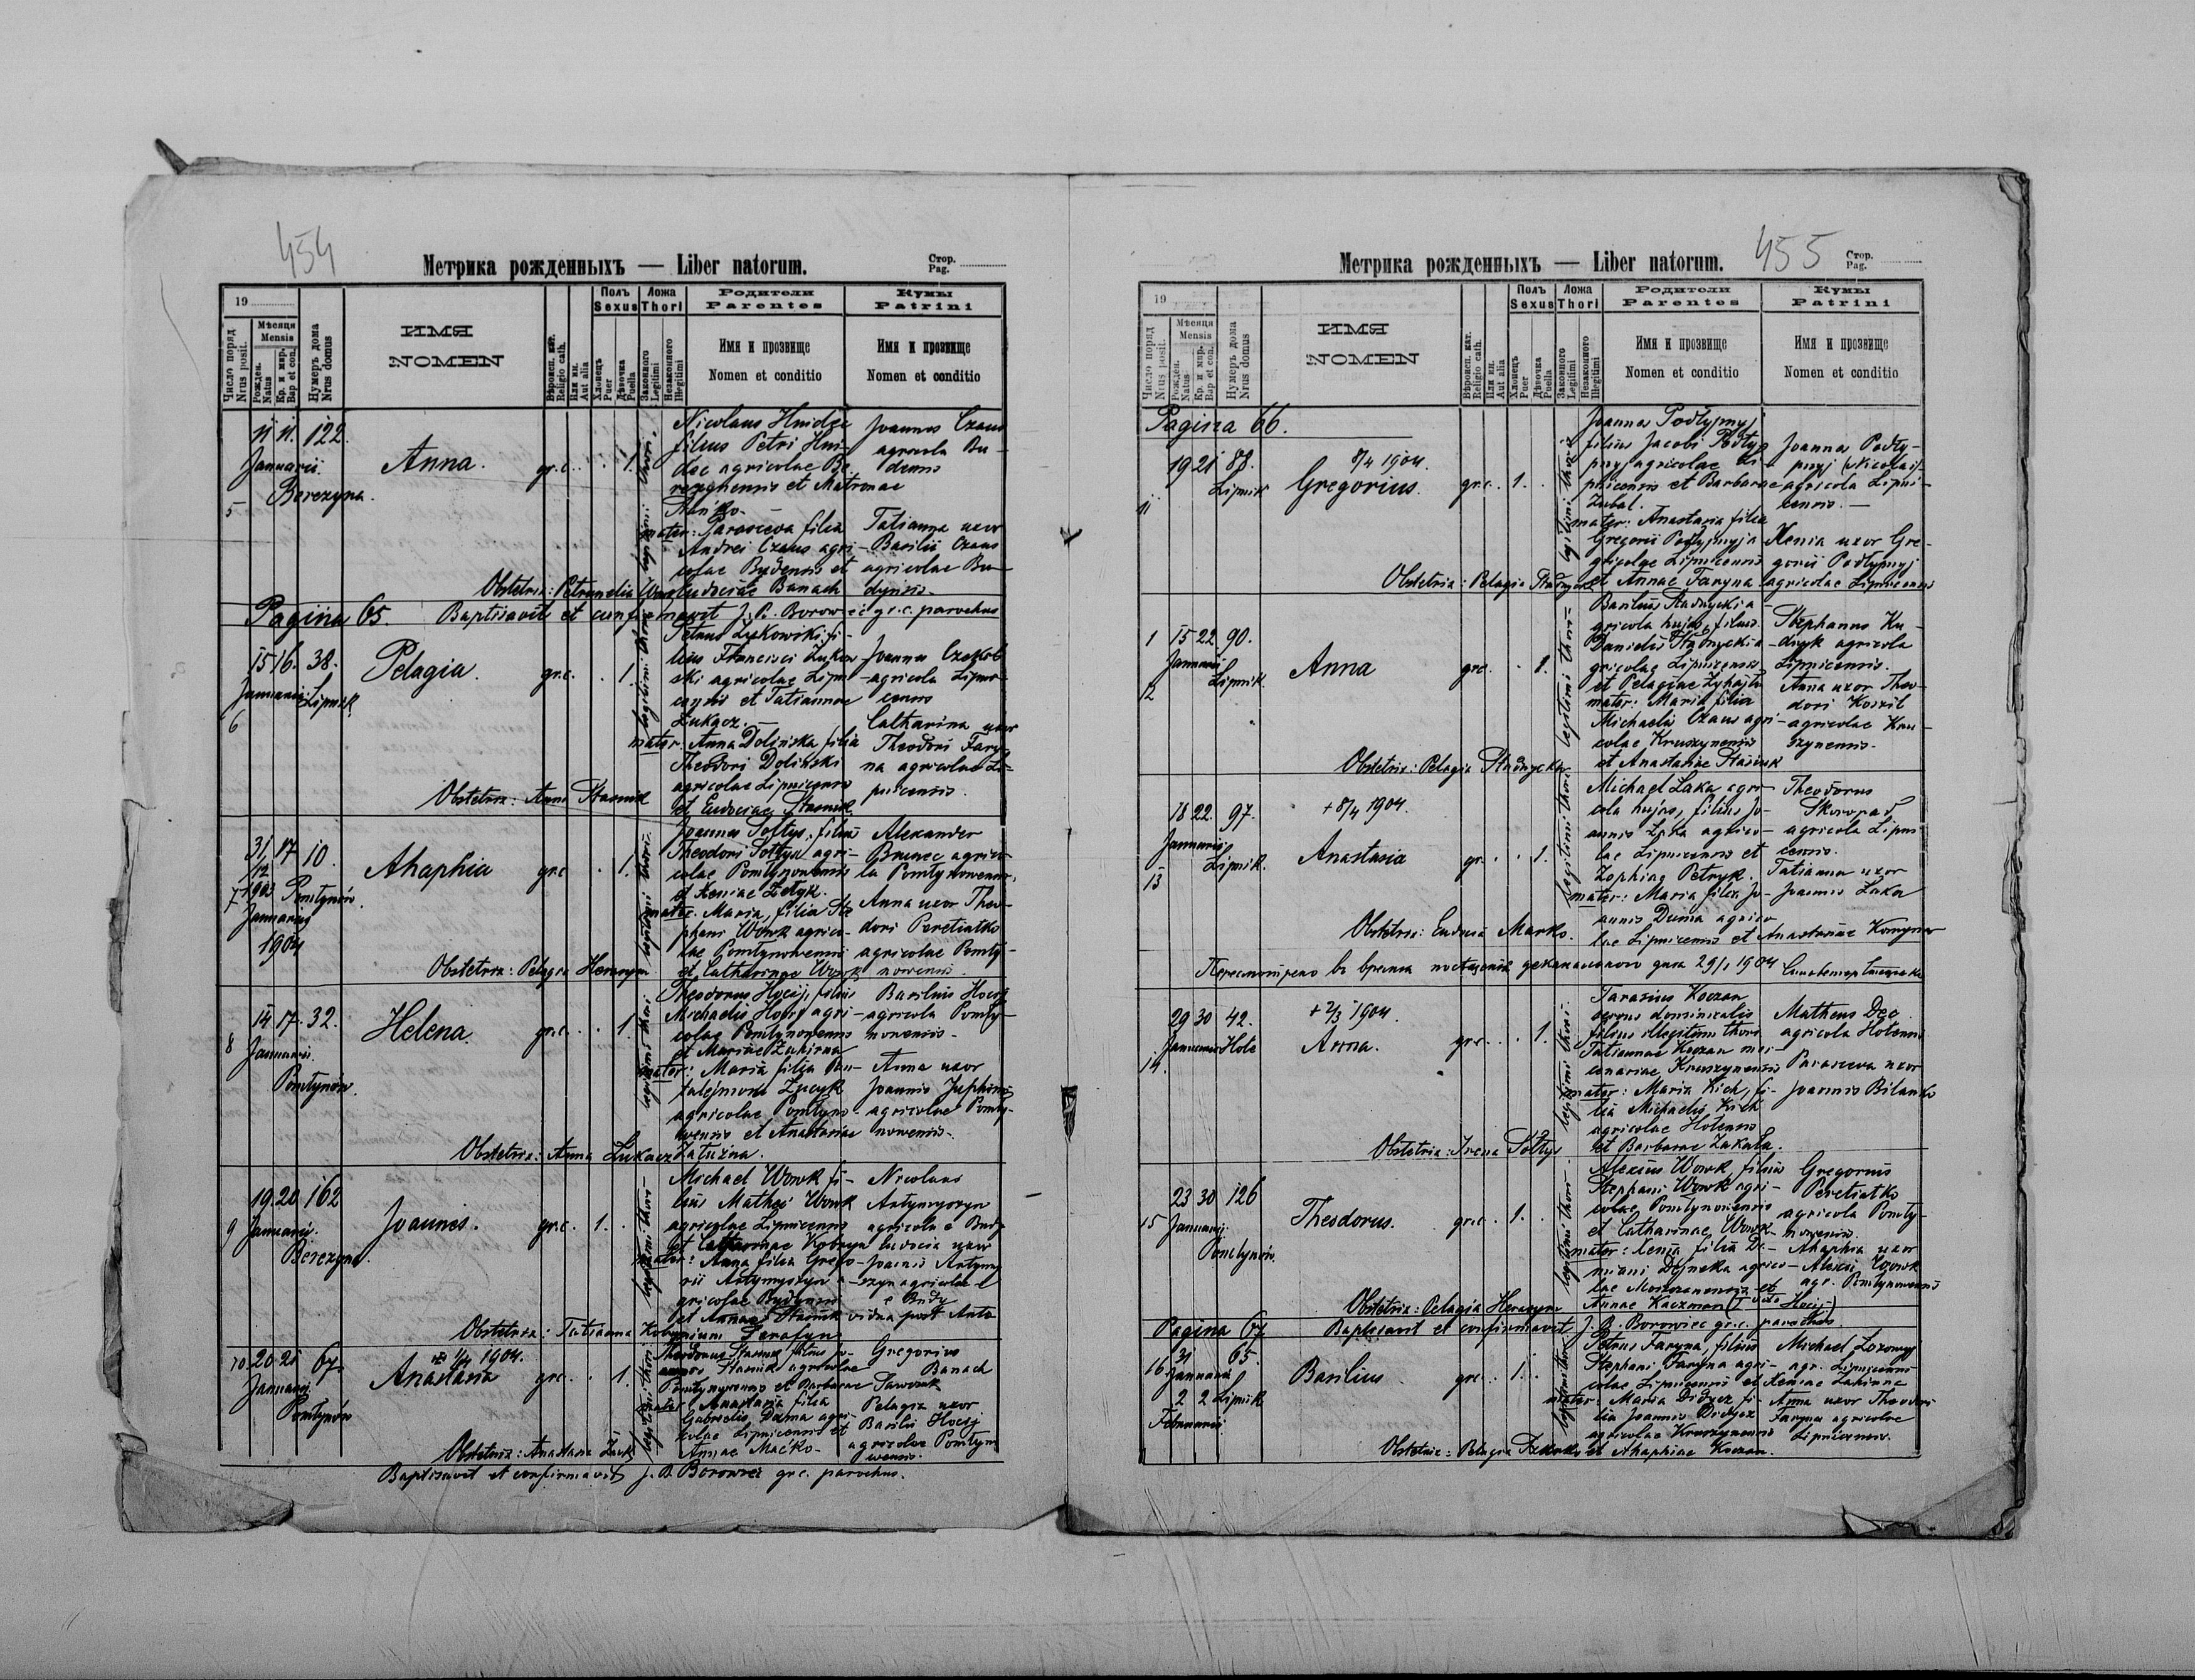 454
Метрика рожденныхъ — Liber natorum.
Стор.
Pag.
19
Число поряд
Nrus posit.
Мѣсяця
Mensis
Рожден.
Natus
Кр. и мир.
Bap et con.
Нумеръ дома
Nrus domus
ИМЯ
NOMEN
Вѣроисп. кат.
Religio cath.
Или ин.
Aut alia
Полъ
Sexus
Хлопецъ
Puer
Дѣвочка
Puella
Ложа
Thori
Законного
Legitimi
Незаконного
Illegitimi
Родители
Parentes
Имя и прозвище
Nomen et conditio
Кумы
Patrini
Имя и прозвище
Nomen et conditio
5
11 11. 122.
Januarii
Berezyna.
Anna.
gr.c. 1.
legitimi thori.
Nicolaus Hnidec
filius Petri Hni-
dec agricolae Be-
rezynensis et Matronae
mater: Parasceva filia
Andrei Czaus agri-
colae Budensis et
Eudociae Banach
Joannes Czaus
agricola Bu-
densis
Tatianna uxor
Basilii Czaus
agricolae Bu-
densis.
Obstetrix: Petronelia
Pagina 65. Baptisavit et confirmavit J. B. Borowiec gr. c. parochus
6
15 16. 38.
Januarii Lipnik
Pelagia.
gr.c. 1.
legitimi thori
Petrus Żukowski fi-
lius Francisci Żukow-
ski agricolae Lipni-
censis et Tatiannae
Łukacz.
mater: Anna Dolinska filia
Theodori Dolinski
agricolae Lipnicensis
et Eudociae Stasiuk
Joannes
agricola Lipni-
censis
Catharina uxor
Theodori Fary-
na agricolae Li-
pnicensis.
Obstetrix: Anna Stasiuk
7
31/12 17 10.
1903
Januarii
1904
Pomłynów.
Ahaphia
gr.c. 1.
legitimi thori.
Joannes Sołtys, filius
Theodori Sołtys agri-
colae Pomłynowensis
et Xeniae
mater: Maria, filia Ste-
phani Wowk agrico-
lae Pomłynowensis
et Catharinae Wowk
Alexander
Brunec agrico-
la Pomłynowensis.
Anna uxor Theo-
dori Peretiatko
agricolae Pomły-
nowensis.
Obstetrix: Pelagia Herasym
8
14 17. 32.
Januarii.
Pomłynów.
Helena
gr.c. 1.
legitimi thori.
Theodorus Hocij, filius
Michaelis Hocij agri-
colae Pomłynowensis
et Mariae
mater: Maria filia Pan-
talejmoni
agricolae Pomłyno-
wensis et Anastasiae
Załuzna.
Basilius Hocij
agricola Pomły-
nowensis.
Anna uxor
Joannis
agricolae Pomły-
nowensis.
Obstetrix: Anna Łukacz
9
19. 20 162
Januarii.
Berezyna.
Joannes.
gr.c. 1.
legitimi thori
Michael Wowk fi-
lius Mathei Wowk
agricolae Lipnicensis
et Catharinae Kobryn
mater: Anna filia Grego-
rii Antymyszyn a-
gricolae Budzensis
et Annae Stasiuk
Nicolaus
Antymyszyn
agricola e Budy
Eudocia uxor
Joannis Antymy-
szyn agricolae
e Budy
vidua post
Serafyn
Obstetrix: Tatianna
10.
20 21 67.
Januarii.
Pomłynów
1/4 1904.
Anastasia
gr.c. 1.
legitimi thori
Theodorus Stasiuk filius Jo-
annis Stasiuk agricolae
Pomłynowensis et Barbarae Sawczuk
mater Anastasia filia
Gabrielis Duma agri-
colae Lipnicensis et
Annae Maćko-
Gregorius
Banach
Pelagia uxor
Basilii Hocij
agricolae Pomłyno-
wensis.
Obstetrix: Anastasia
Baptisavit et confirmavit J. B. Borowiec gr.c. parochus.
455
Метрика рожденныхъ — Liber natorum.
Стор.
Pag.
19
Число поряд
Nrus posit.
Мѣсяця
Mensis
Рожден.
Natus
Кр. и мир.
Bap et con.
Нумеръ дома
Nrus domus
ИМЯ
NOMEN
Вѣроисп. кат.
Religio cath.
Или ин.
Aut alia
Полъ
Sexus
Хлопецъ
Puer
Дѣвочка
Puella
Ложа
Thori
Законного
Legitimi
Незаконного
Illegitimi
Родители
Parentes
Имя и прозвище
Nomen et conditio
Кумы
Patrini
Имя и прозвище
Nomen et conditio
Pagina 66.
11
19 21 88.
Lipnik
8/4 1904.
Gregorius.
gr.c. 1.
legitimi thori
Joannes Podłypnyj
filius Jacobi Podły-
pnyj agricolae Li-
pnicensis et Barbarae
Zubal.
mater: Anastasia filia
Gregorii Podłypnyj a-
gricolae Lipnicensis
et Annae Faryna
Joannes Podły-
pnyj (Nicolai)
agricola Lipni-
censis. —
Xenia uxor Gre-
gorii Podłypnyj
agricolae Lipnicensis
Obstetrix: Pelagia Stadnycka
1
12
15 22 90.
Januarii
Lipnik.
Anna
gr.c. 1.
legitimi thori
Basilius Stadnycki a-
gricola hujas, filius
Danielis Stadnycki a-
gricolae Lipnicensis
et Pelagiae
mater: Maria filia
Michaelis Czaus agri-
colae Kruszynensis
et Anastasiae Stasiuk
Stephanus Ku-
dryk agricola
Lipnicensis.
Anna uxor Theo-
dori
agricolae Kru-
szynensis.
Obstetrix: Pelagia Stadnycka
13
18 22. 97.
Januarii
Lipnik.
+ 8/4 1904.
Anastasia
gr. 1.
legitimi thori
Michael Łaka agri-
cola hujas, filius Jo-
annis Łaka agrico-
lae Lipnicensis et
Zophiae Petryk.
mater: Maria filia Jo-
annis Duma agrico-
lae Lipnicensis et Anastasiae
Theodorus
Skoropad
agricola Lipni-
censis.
Tatianna uxor
Joannis Łaka
Obstetrix: Eudocia Marko.
Пересмотрено во время посѣщенія деканального дня 29/1 1904
14.
29 30 42.
Januarii Hole
+ 2/3 1904.
Anna.
gr.c. 1.
legitimi thori.
Tarasius Koczan
servus dominicalis
filius illegitimi thori
Tatiannae Koczan mer-
cenariae Kruszynensis
mater: Maria Kich, fi-
lia Michaelis Kich
agricolae Holensis
et Barbarae Zakała.
Matheus Deo
agricola Holensis
Parasceva uxor
Joannis Bilanko
Obstetrix: Irena Sołtys
15
23 30 126
Januarii.
Pomłynów.
Theodorus.
gr.c. 1.
legitimi thori
Alexius Wowk, filius
Stephani Wowk agri-
colae Pomłynowensis
et Catharinae Wowk
mater: Xenia filia De-
miani Dejneka agrico-
lae et
Annae Kaczmar (I voto Hocij)
Gregorius
Peretiatko
agricola Pomły-
nowensis.
Ahaphia uxor
Alexii Wowk
agr. Pomłynowensis
Obstetrix: Pelagia Herasym
Pagina 67 Baptisavit et confirmavit J. B. Borowiec gr.c. parochus
16
31 65.
Januarii
2 2 Lipnik
Februarii
Basilius
gr.c. 1.
legitimi thori
Petrus Faryna, filius
Stephani Faryna agri-
colae Lipnicensis et Xeniae
mater: Maria Didycz fi-
lia Joannis Didycz
agricolae Kruszynensis
et Ahaphiae Koczan.
Michael Lozowyj
agr. Lipnicensis
Anna uxor Theodori
Faryna agricolae
Lipnicensis.
Obstetrix: Pelagia